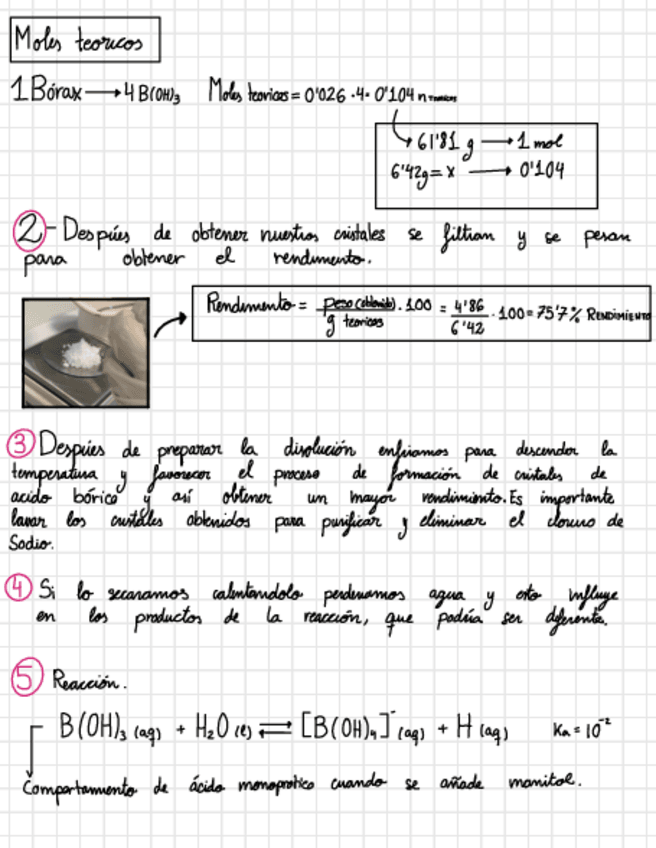 Moles teoricos
1 Bórax → 4 B(OH)₃ Moles teoricos = 0'026 · 4 = 0'104 n teoricos
61'81 g → 1 mol
6'42g = x → 0'104
2- Despúes de obtener nuestros cristales se filtran y se pesan
para obtener el rendimento.
Rendimento = peso (obtenido) / g teoricos · 100 = 4'86 / 6'42 · 100 = 75'7% RENDIMIENTO
3 Despúes de preparar la disolución enfriamos para descender la
temperatura y favorecer el proceso de formación de cristales de
acido bórico y así obtener un mayor rendimiento. Es importante
lavar los cristales obtenidos para purificar y eliminar el cloruro de
Sodio.
4 Si lo secaramos calentandolo perderiamos agua y esto influye
en los productos de la reacción, que podría ser diferente.
5 Reacción.
B(OH)₃ (aq) + H₂O (l) ⇌ [B(OH)₄]⁻ (aq) + H (aq) Ka = 10⁻²
Comportamiento de ácido monoprotico cuando se añade manitol.